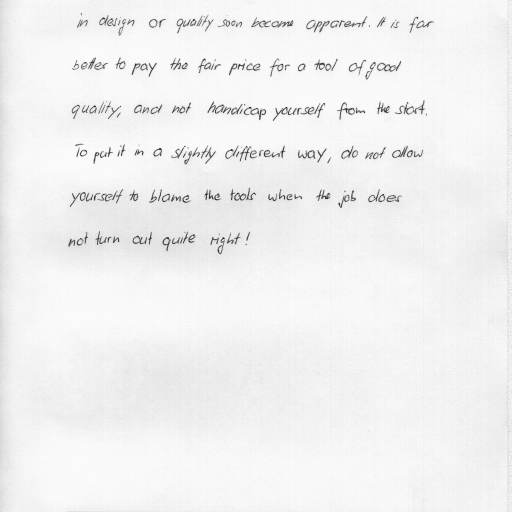 in design or quality soon become apparent. It is far
better to pay the fair price for a tool of good
quality, and not handicap yourself from the start.
To put it in a slightly different way, do not allow
yourself to blame the tools when the job does
not turn out quite right!